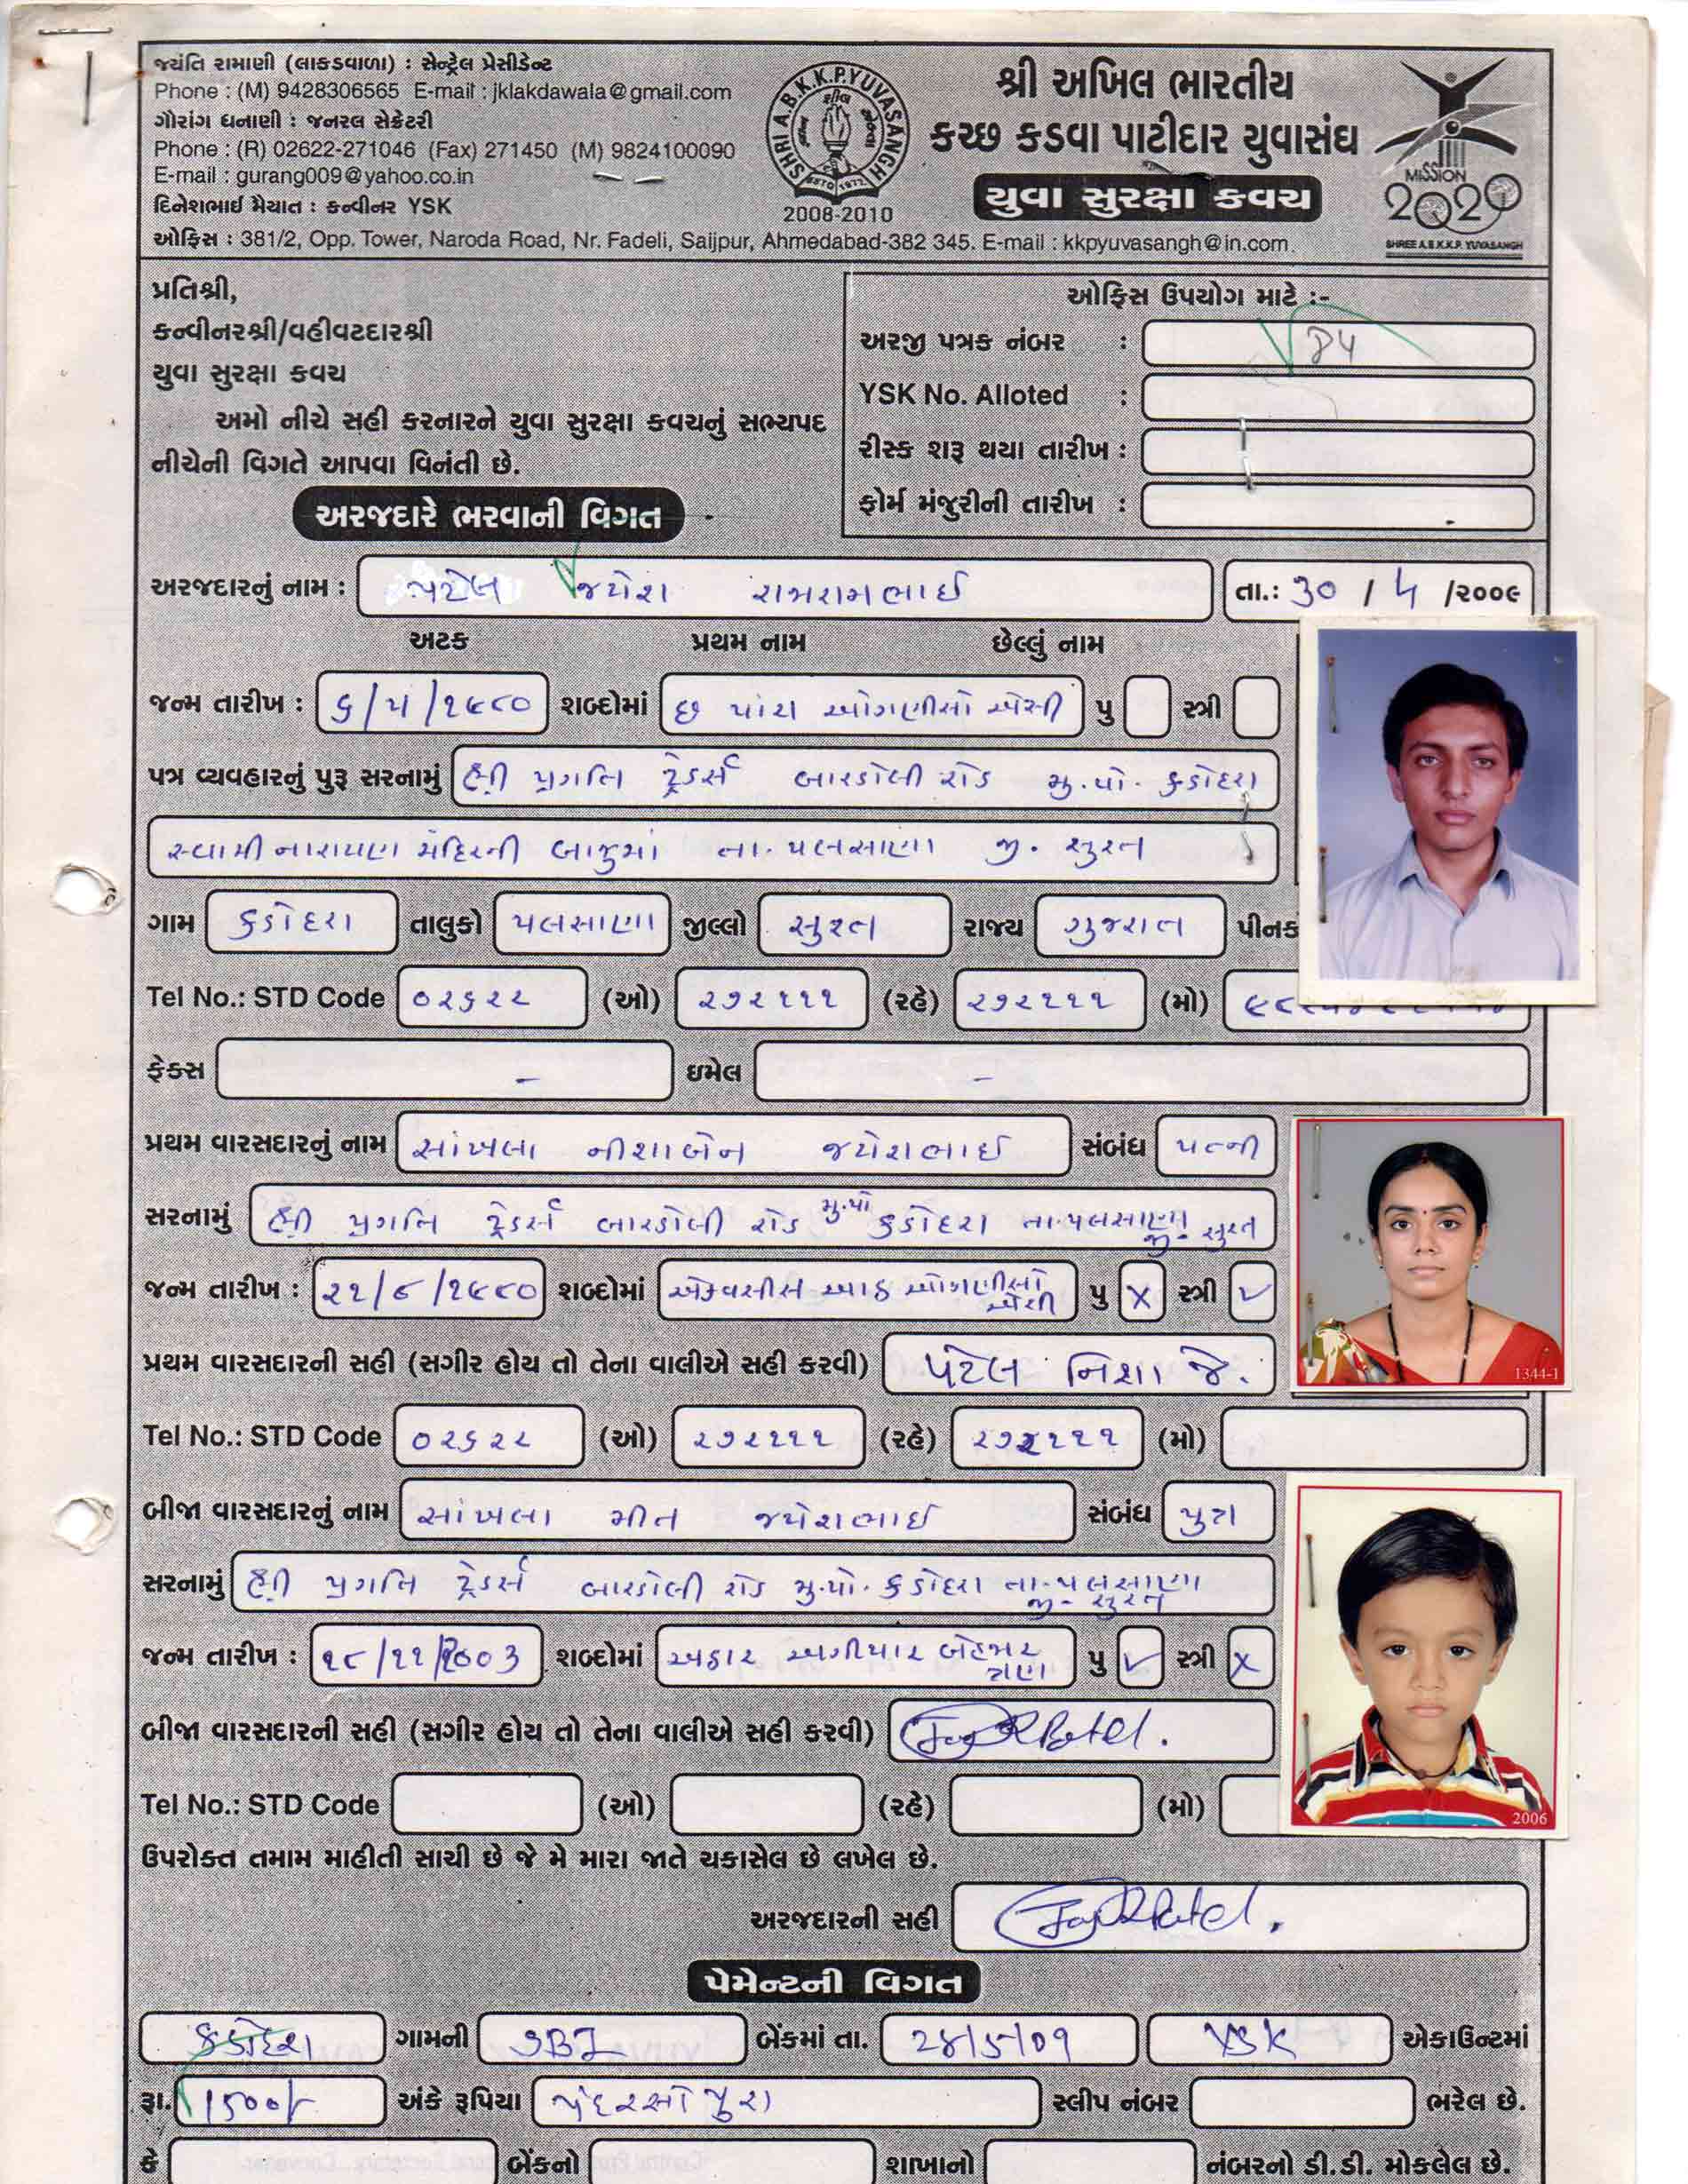 જયંતિ રામાણી (લાકડાવાળા) : સેન્ટ્રેલ પ્રેસીડેન્ટ
Phone : (M) 9428306565 E-mail : jklakdawala@gmail.com
ગૌરાંગ ધનાણી : જનરલ સેક્રેટરી
Phone : (R) 02622-271046 (Fax) 271450 (M) 9824100090
E-mail : gurang009@yahoo.co.in
દિનેશભાઈ મૈયાત : કન્વીનર YSK
SHRI A.B.K.K.P. YUVASANGH
ESTD 1972
2008-2010
શ્રી અખિલ ભારતીય
કચ્છ કડવા પાટીદાર યુવાસંઘ
યુવા સુરક્ષા કવચ
MISSION
2020
SHREE A.B.K.K.P. YUVASANGH
ઓફિસ : 381/2, Opp. Tower, Naroda Road, Nr. Fadeli, Saijpur, Ahmedabad-382 345. E-mail : kkpyuvasangh@in.com.
પ્રતિશ્રી,
કન્વીનરશ્રી/વહીવટદારશ્રી
યુવા સુરક્ષા કવચ
અમો નીચે સહી કરનારને યુવા સુરક્ષા કવચનું સભ્યપદ
નીચેની વિગતે આપવા વિનંતી છે.
ઓફિસ ઉપયોગ માટે :-
અરજી પત્રક નંબર :
YSK No. Alloted :
રીસ્ક શરૂ થયા તારીખ :
ફોર્મ મંજુરીની તારીખ :
અરજદારે ભરવાની વિગત
અરજદારનું નામ : પટેલ જયેશ રામરામભાઈ તા.: 30 / 4 /૨૦૦૯
અટક પ્રથમ નામ છેલ્લું નામ
જન્મ તારીખ : ૬/૫/૧૯૮૦ શબ્દોમાં છ પાંચ ઓગણીસો એંસી પુ સ્ત્રી
પત્ર વ્યવહારનું પુરૂ સરનામું શ્રી પ્રગતિ ટ્રેડર્સ બારડોલી રોડ મુ.પો. કડોદરા
સ્વામીનારાયણ મંદિરની બાજુમાં તા. પલસાણા જી. સુરત
ગામ કડોદરા તાલુકો પલસાણા જીલ્લો સુરત રાજ્ય ગુજરાત પીનક
Tel No.: STD Code ૦૨૬૨૨ (ઓ) ૨૭૨૧૧૧ (રહે) ૨૭૨૧૧૧ (મો)
ફેક્સ - ઇમેલ -
પ્રથમ વારસદારનું નામ સાંખલા નીશાબેન જયેશભાઈ સંબંધ પત્ની
સરનામું શ્રી પ્રગતિ ટ્રેડર્સ બારડોલી રોડ મુ.પો કડોદરા તા.પલસાણા જી. સુરત
જન્મ તારીખ : ૨૧/૮/૧૯૮૦ શબ્દોમાં એકવીસ આઠ ઓગણીસો એંસી પુ X સ્ત્રી ✓
પ્રથમ વારસદારની સહી (સગીર હોય તો તેના વાલીએ સહી કરવી) પટેલ નિશા જે.
1344-1
Tel No.: STD Code ૦૨૬૨૨ (ઓ) ૨૭૨૧૧૧ (રહે) ૨૭૨૧૧૧ (મો)
બીજા વારસદારનું નામ સાંખલા મીત જયેશભાઈ સંબંધ પુત્ર
સરનામું શ્રી પ્રગતિ ટ્રેડર્સ બારડોલી રોડ મુ.પો. કડોદરા તા.પલસાણા જી. સુરત
જન્મ તારીખ : ૧૮/૧૧/૨૦૦૩ શબ્દોમાં અઢાર અગીયાર બેહજાર ત્રણ પુ ✓ સ્ત્રી X
બીજા વારસદારની સહી (સગીર હોય તો તેના વાલીએ સહી કરવી) Patel.
Tel No.: STD Code (ઓ) (રહે) (મો)
2006
ઉપરોક્ત તમામ માહીતી સાચી છે જે મે મારા જાતે ચકાસેલ છે લખેલ છે.
અરજદારની સહી Patel.
પેમેન્ટની વિગત
કડોદરા ગામની SBI બેંકમાં તા. 28/5/09 YSK એકાઉન્ટમાં
રૂા. 1500/- અંકે રૂપિયા પંદરસો પુરા સ્લીપ નંબર ભરેલ છે.
કે બેંકનો શાખાનો નંબરનો ડી.ડી. મોકલેલ છે.